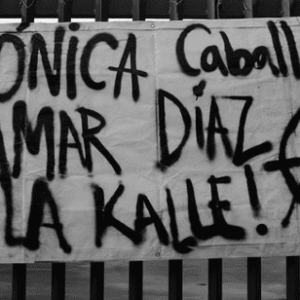 ÓNICA Caball
AMAR DIAZ
LA KALLE!